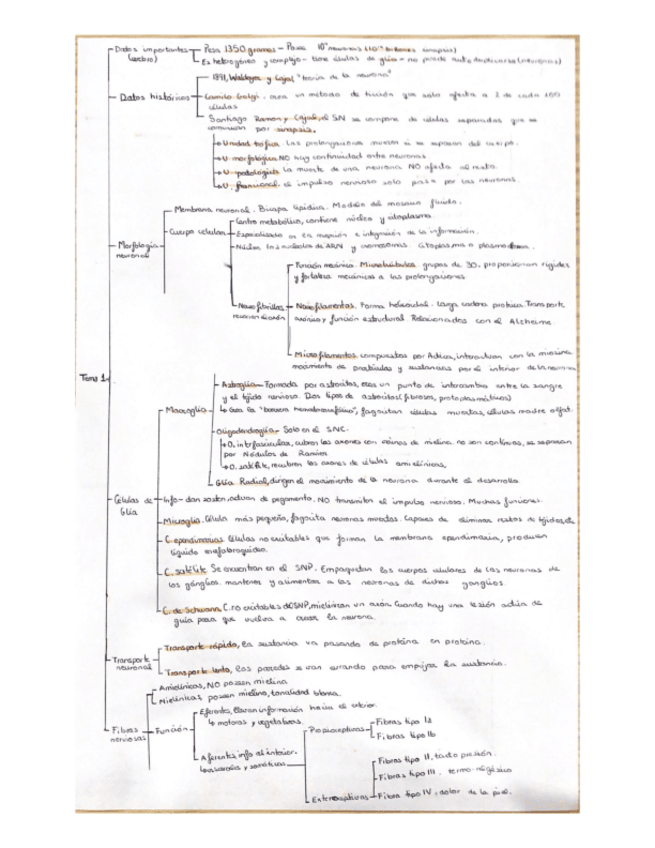 Datos importantes (cerebro)
Pesa 1350 gramos - Posee
Es heterogéneo y complejo - tiene células de glía - no puede autoduplicarse (neuronas)
Datos históricos
1891, Waldeyer y Cajal "teoría de la neurona"
Camilo Golgi. crea un método de tinción que solo afecta a 1 de cada 100
células
Santiago Ramón y Cajal, el SN se compone de células separadas que se
comunican por sinapsis.
Unidad trófica. Las prolongaciones mueren si se separan del cuerpo.
U. morfológica NO hay continuidad entre neuronas
U. patológica La muerte de una neurona NO afecta al resto.
U. funcional. el impulso nervioso solo pasa por las neuronas.
Tema 1
Morfología neuronal
Membrana neuronal. Bicapa lipídica. Modelo del mosaico fluido.
Cuerpo celular
Centro metabólico, contiene núcleo y citoplasma
Especializado en la recepción e integración de la información.
Núcleo, moléculas de ARN y cromosomas. Citoplasma o plasma
Neurofibrillas
Función mecánica. Microtúbulos. grupos de 30. proporcionan rigidez
y fortaleza mecánica a las prolongaciones
Neurofilamentos. Forma helicoidal. Larga cadena proteica. Transporte
axónico y función estructural. Relacionados con el Alzheime.
Microfilamentos compuestos por Actina, interactúan con la miosina
movimiento de partículas y sustancias por el interior de la neurona
Células de Glía
Macroglia
Astroglia - Formada por astrocitos, crea un punto de intercambio entre la sangre
y el tejido nervioso. Dos tipos de astrocitos (fibrosos, protoplasmáticos)
↳ crea la "barrera hematoencefálica", fagocitan células muertas, células madre olfat.
Oligodendroglia - Solo en el SNC.
O. interfascicular, cubren los axones con vainas de mielina. no son continuas, se separan
por Nódulos de Ranvier
O. satélite, recubren los axones de células amielínicas.
Glía Radial, dirigen el movimiento de la neurona durante el desarrollo
Info - dan sostén, actúan de pegamento. NO transmiten el impulso nervioso. Muchas funciones.
Microglia. Célula más pequeña, fagocita neuronas muertas. Capaces de eliminar restos de tejidos, etc
C. ependimarias. Células no excitables que forman la membrana ependimaria, producen
líquido cefalorraquídeo.
C. satélite Se encuentran en el SNP. Empaquetan los cuerpos celulares de las neuronas de
los gánglios. mantienen y alimentan a las neuronas de dichos ganglios.
C. de Schwann. C. no excitables del SNP, mielinizan un axón. Cuando hay una lesión actúa de
guía para que vuelva a crecer la neurona.
Transporte neuronal
Transporte rápido, la sustancia va pasando de proteína en proteína.
Transporte lento, las paredes se van cerrando para empujar la sustancia.
Fibras nerviosas
Amielínicas, NO poseen mielina
Mielínicas, poseen mielina, tonalidad blanca.
Función
Eferentes, llevan información hacia el exterior.
↳ motoras y vegetativas.
Aferentes, info al interior.
↳ sensoriales y somáticas
Propioceptivas
Fibras tipo Ia
Fibras tipo Ib
Exteroceptivas
Fibras tipo II. tacto presión.
Fibras tipo III.
Fibra tipo IV. dolor de la piel.